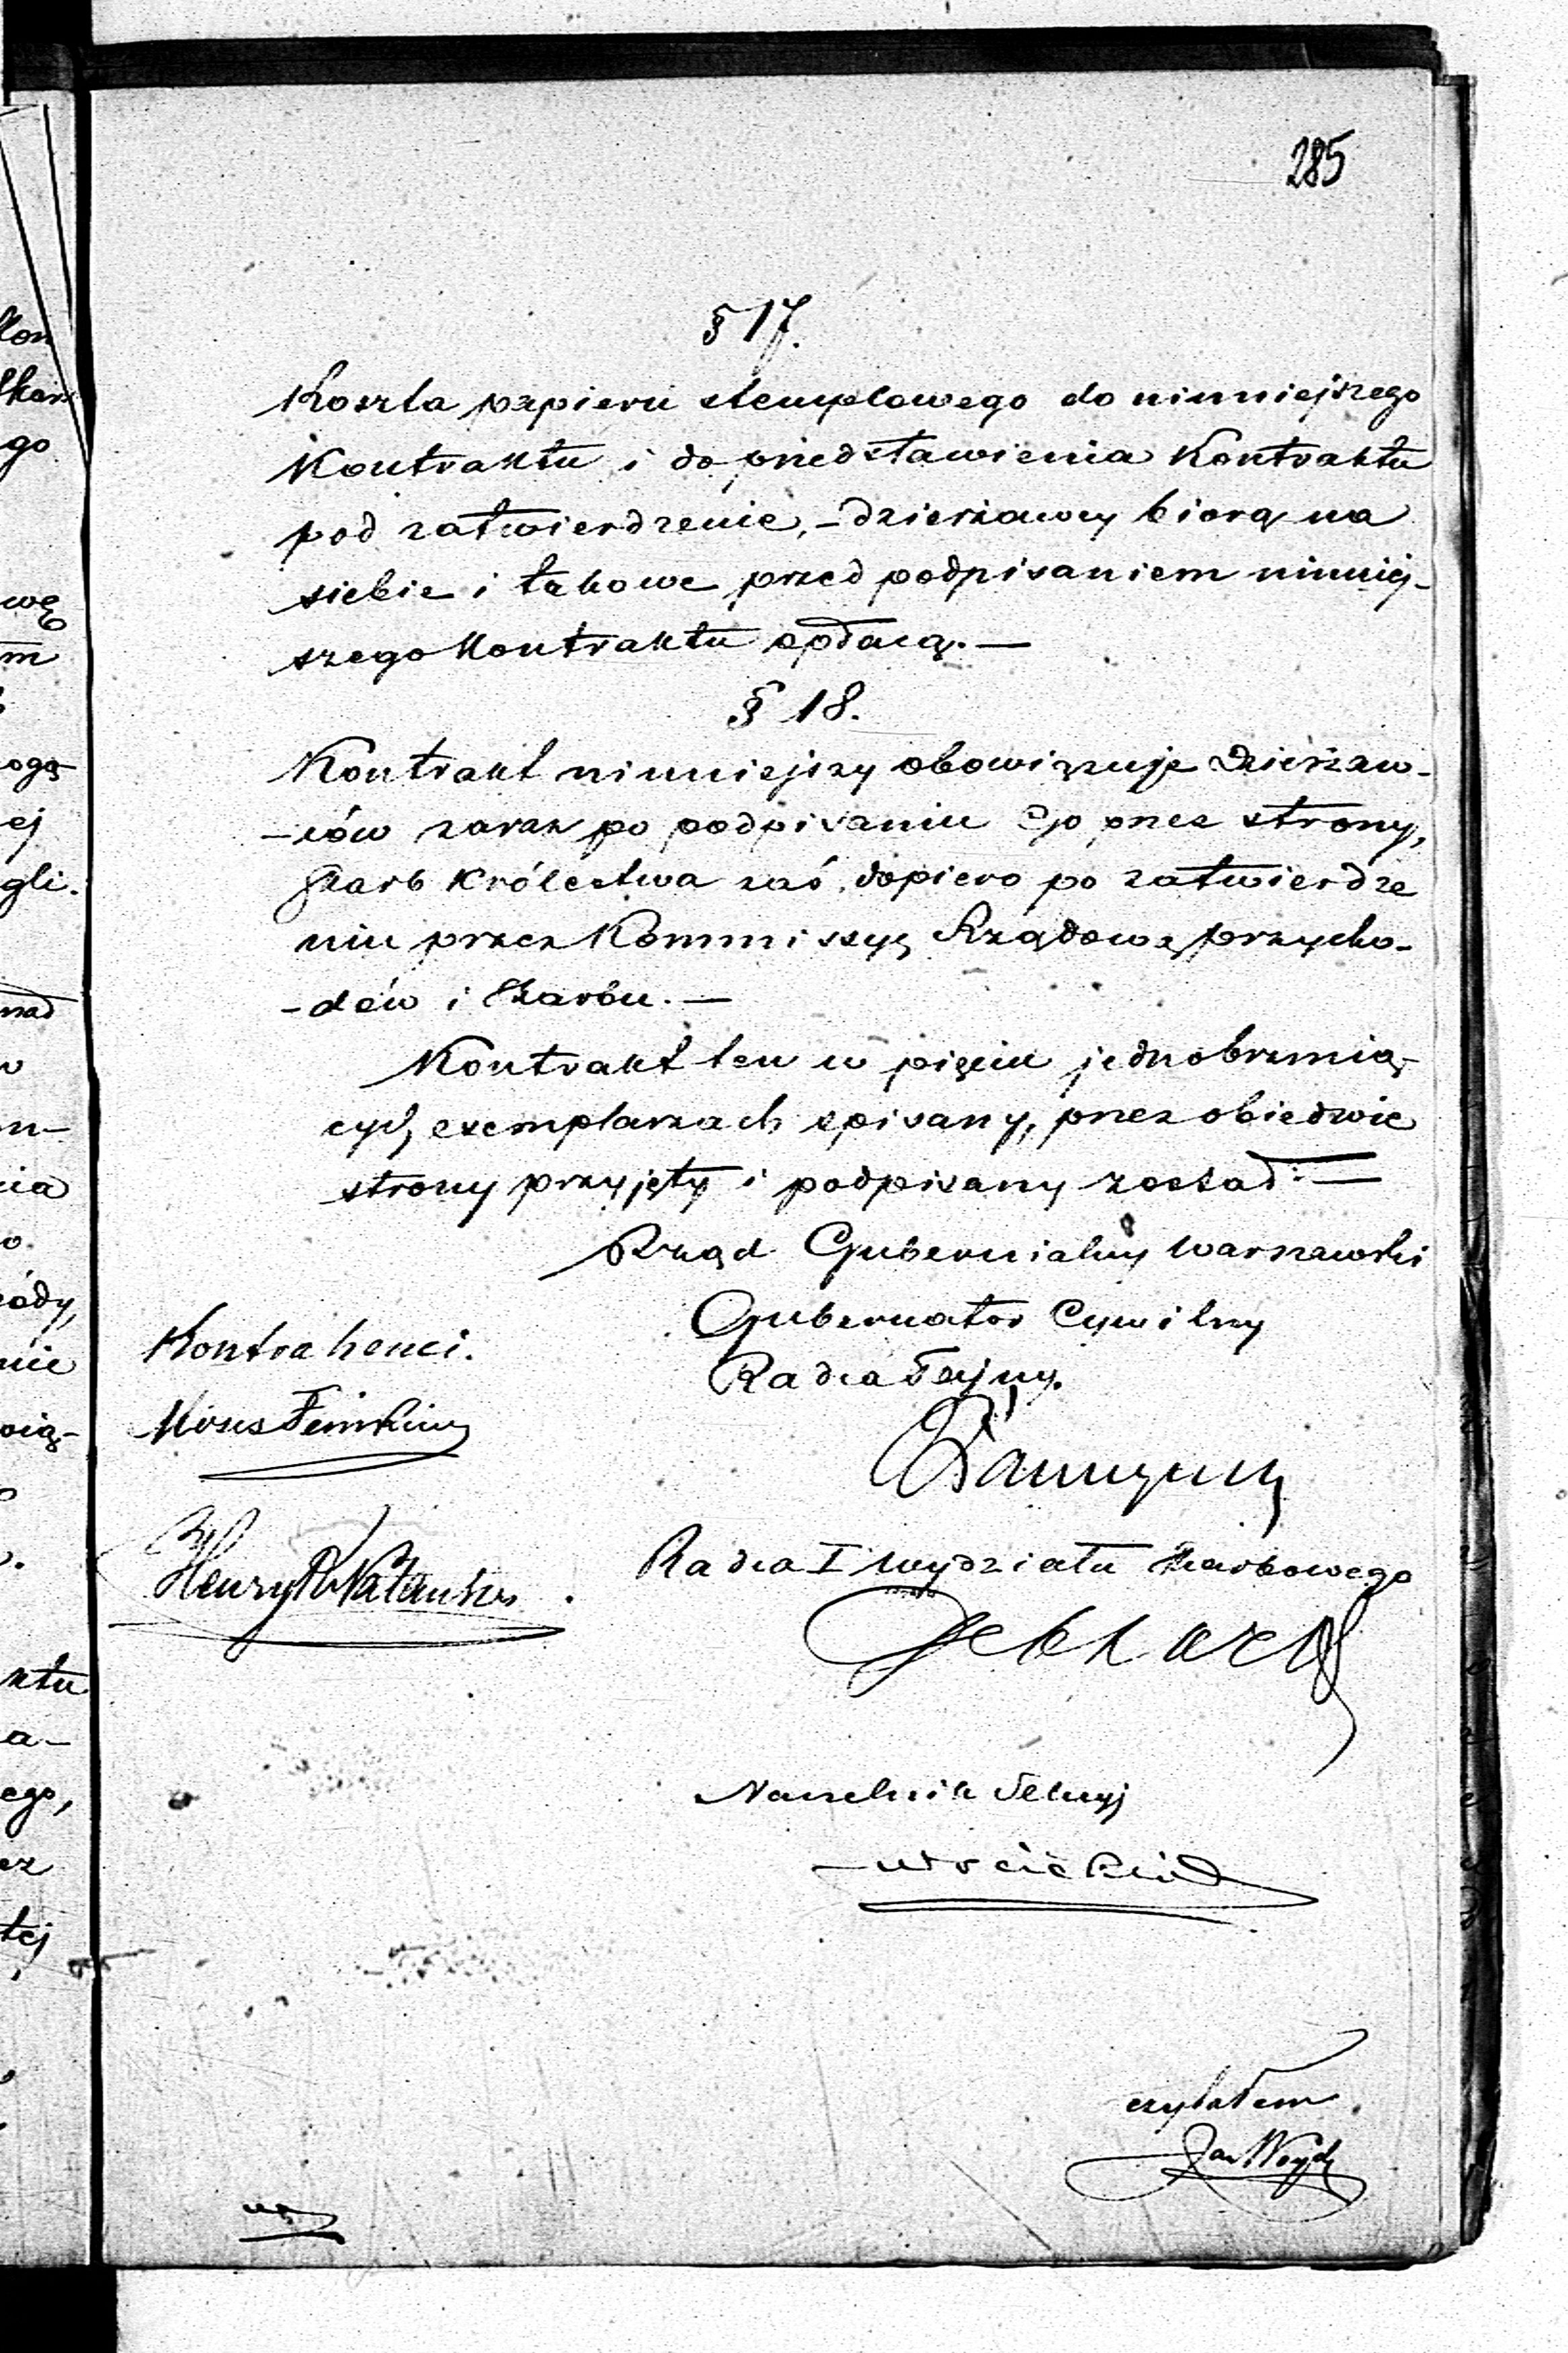 285
§ 17.
Koszta papieru stemplowego do ninniejszego
Kontraktu i do przedstawienia Kontraktu
pod zatwierdzenie, – dzierżawcy biorą na
siebie i takowe przed podpisaniem ninniej-
szego Kontraktu opłacą. —
§ 18.
Kontrakt ninniejszy obowiązuje Dzierżaw-
-ców zaraz po podpisaniu Go przez strony,
Skarb Królestwa zaś, dopiero po zatwierdze
niu przez Kommissyą Rządową przycho-
-dów i Skarbu. —
Kontrakt ten w pięciu jednobrzmią-
cych exemplarzach spisany, przez obiedwie
strony przyjęty i podpisany został: —
Rząd Gubernialny Warszawski
Gubernator Cywilny
Radca Tajny.
Kontrahenci.
Radca I Wydziału Skarbowego
Henryk Natanson
Naczelnik Sekcyj
czytałem
Jan Woyd